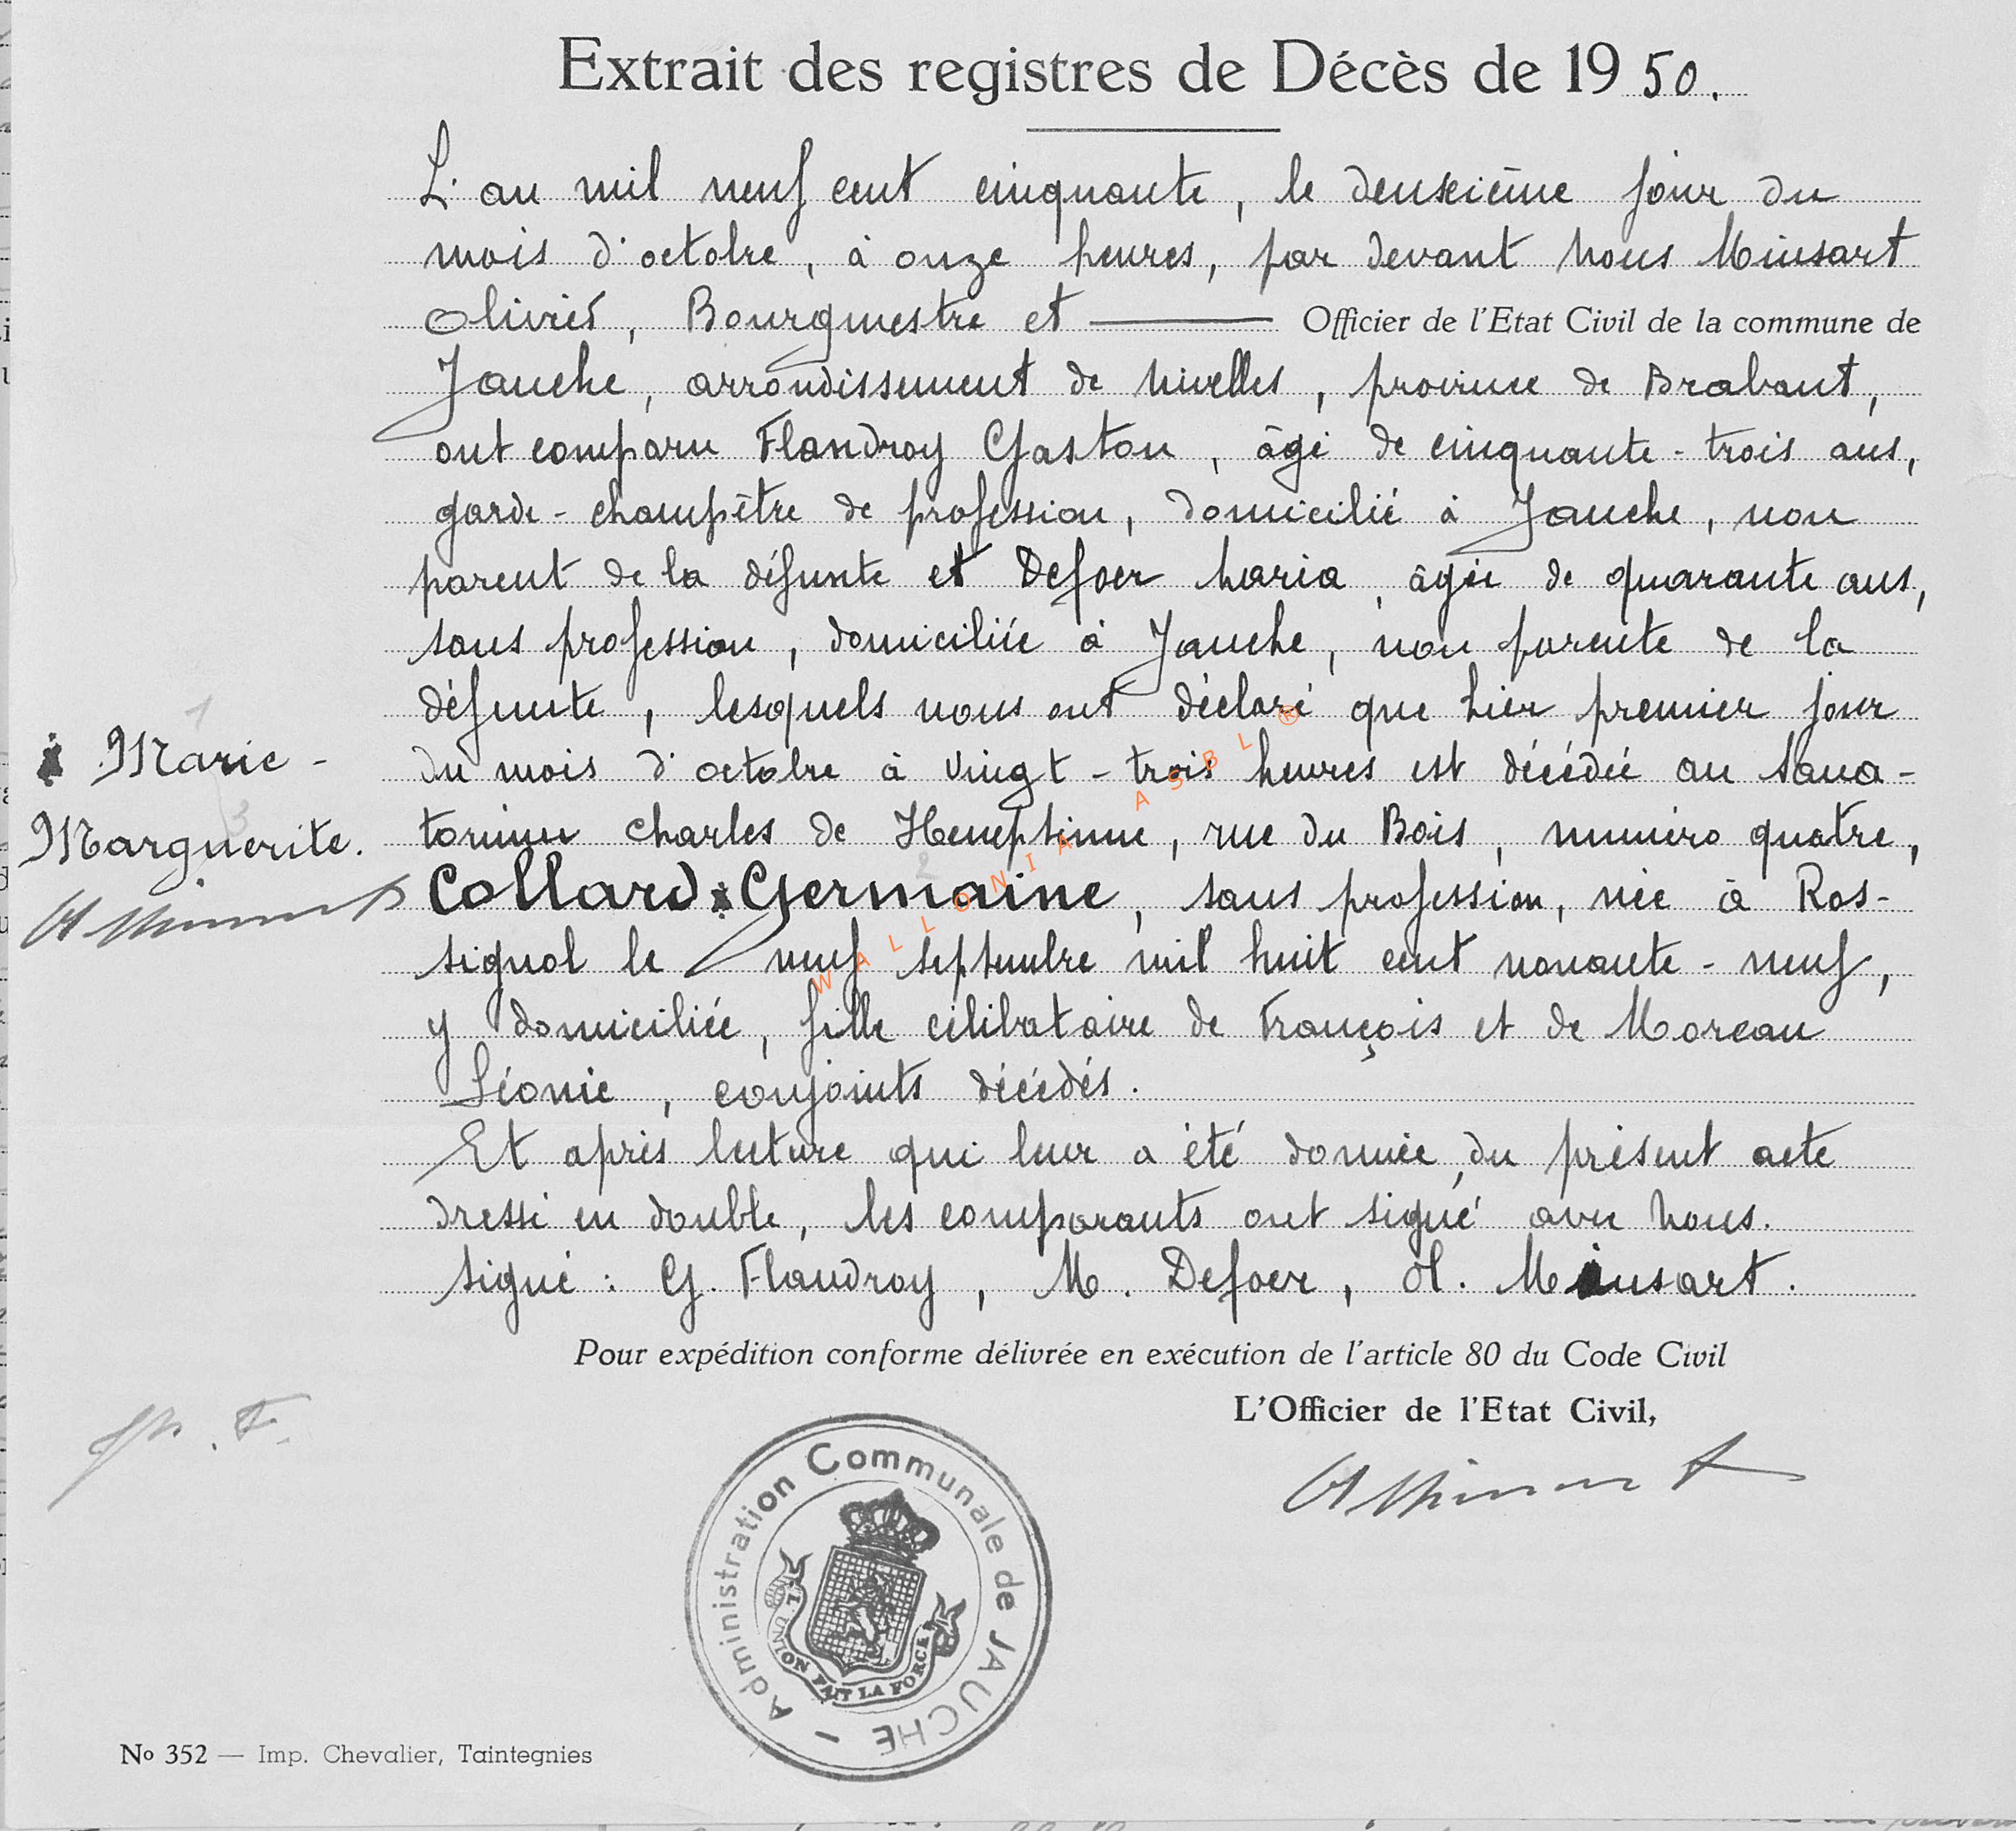 Extrait des registres de Décès de 19 50.
L'an mil neuf cent cinquante, le deuxième jour du
mois d'octobre, à onze heures, par devant Nous Minsart
Olivier, Bourgmestre et ——— Officier de l'Etat Civil de la commune de
Jauche, arrondissement de Nivelles, province de Brabant,
ont comparu Flandroy Gaston, âgé de cinquante-trois ans,
garde-champêtre de profession, domicilié à Jauche, non
parent de la défunte et Defoer Maria, âgée de quarante ans,
sans profession, domiciliée à Jauche, non parente de la
défunte, lesquels nous ont déclaré que hier premier jour
1
Marie-
du mois d'octobre à vingt-trois heures est décédée au Sana-
3
Marguerite.
torium Charles de Hemptinne, rue du Bois, numéro quatre,
2
Collard Germaine, sans profession, née à Ros-
signol le neuf septembre mil huit cent nonante-neuf,
y domiciliée, fille célibataire de François et de Moreau
Léonie, conjoints décédés.
Et après lecture qui leur a été donnée du présent acte
dressé en double, les comparants ont signé avec Nous.
Signé : G. Flandroy, M. Defoer, Ol. Minsart.
Pour expédition conforme délivrée en exécution de l'article 80 du Code Civil
L'Officier de l'Etat Civil,
Administration Communale de JAUCHE —
L'UNION FAIT LA FORCE
No 352 — Imp. Chevalier, Taintegnies
WALLONIA ASBL ®